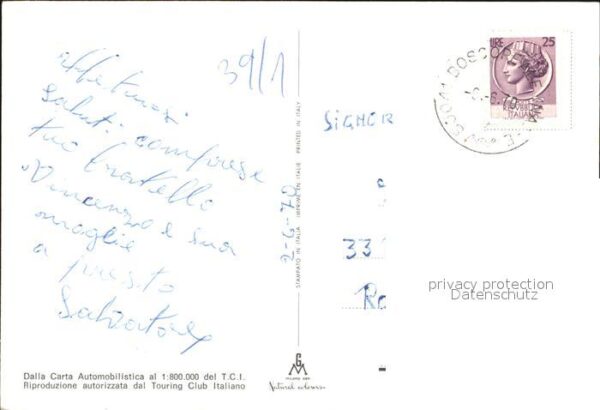 39/1
affettuosi
saluti comprese
tuo fratello
Vincenzo e sua
moglie
a presto
Salvatore
Dalla Carta Automobilistica al 1:800.000 del T.C.I.
Riproduzione autorizzata dal Touring Club Italiano
STAMPATO IN ITALIA IMPRIMÉ EN ITALIE PRINTED IN ITALY
2-6-70
MILANO
Natural colorvox
LIRE 25
ITALIANA
SIGNOR
33
Ro
privacy protection
Datenschutz